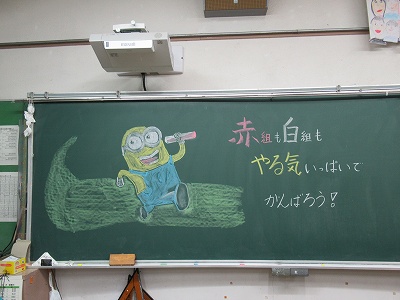 赤組も白組も
やる気いっぱいで
がんばろう!